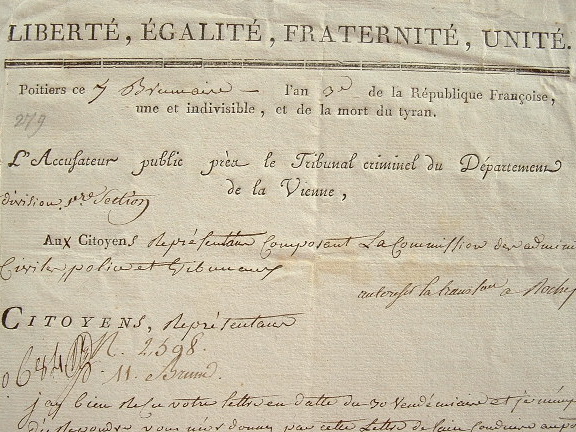 LIBERTÉ, ÉGALITÉ, FRATERNITÉ, UNITÉ.
Poitiers ce 7 Brumaire — l'an 3e de la République Françoise,
une et indivisible, et de la mort du tyran.
279
L'Accusateur public près le Tribunal criminel du Département
de la Vienne,
division. 1re Section
Aux Citoyens Représentans Composant La Commission des admini
Civiles police et Tribunaux
a Roche
CITOYENS, Représentans
N. 2598.
11 Brum.
j'ay bien Reçu votre lettre en datte du 30 Vendémiaire et je
par cette Lettre de faire Conduire